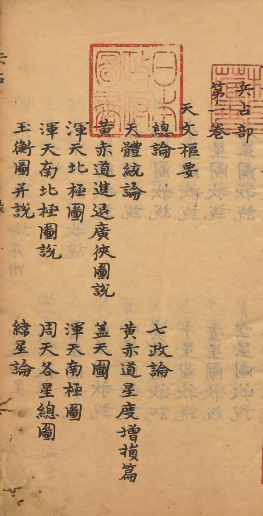 兵占部
第一卷
天文樞要
總論　七政論
天體統論　黃赤道星度增損篇
黃赤道進退廣狹圖說　蓋天圖
渾天北極圖　渾天南極圖
渾天南北極圖說　周天各星總圖
玉衡圖并說　緯星論